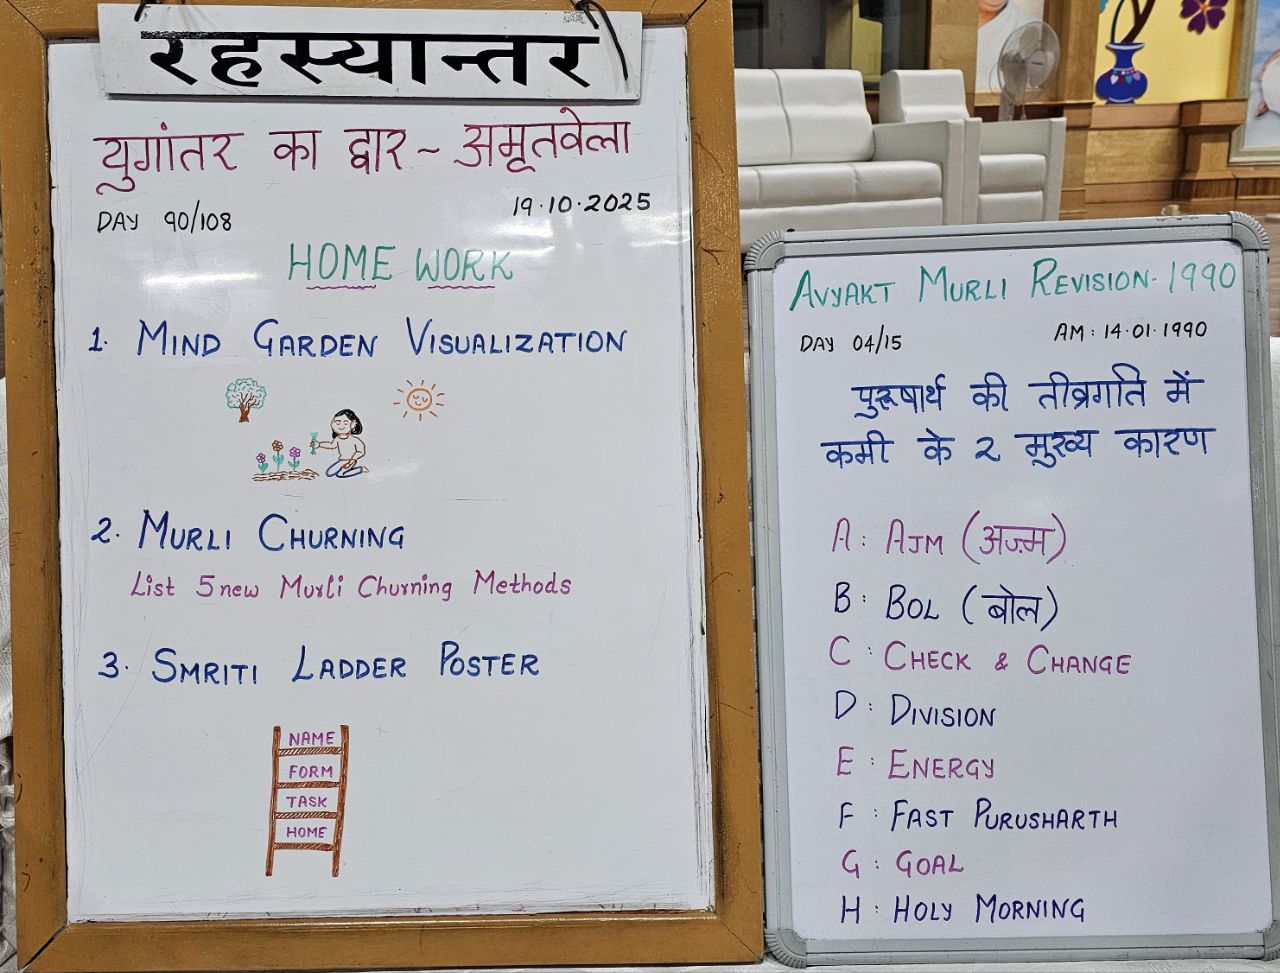 रहस्यान्तर
युगांतर का द्वार ~ अमृतवेला
DAY 90/108
19.10.2025
HOME WORK
1. MIND GARDEN VISUALIZATION
2. MURLI CHURNING
List 5 new Murli Churning Methods
3. SMRITI LADDER POSTER
NAME
FORM
TASK
HOME
AVYAKT MURLI REVISION-1990
DAY 04/15
AM: 14.01.1990
पुरूषार्थ की तीव्रगति में
कमी के 2 मुख्य कारण
A: AJM (अज़्म)
B: BOL (बोल)
C: CHECK & CHANGE
D: DIVISION
E: ENERGY
F: FAST PURUSHARTH
G: GOAL
H: HOLY MORNING